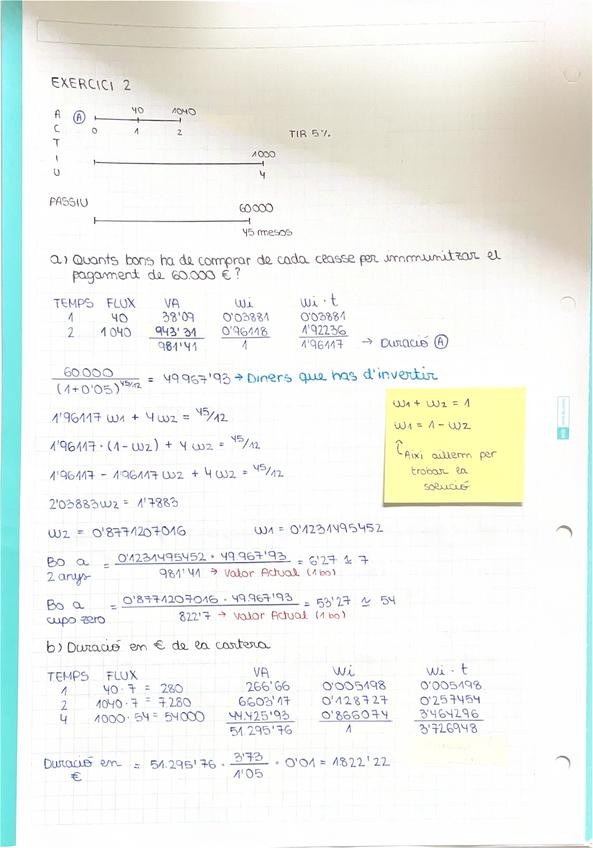 EXERCICI 2
A C T I U
A 40 1040
0 1 2
TIR 5%
1000
4
PASSIU
60000
45 mesos
a) Quants bons ha de comprar de cada classe per immunitzar el
pagament de 60.000 €?
TEMPS FLUX VA Wi Wi·t
1 40 38'09 0'03881 0'03881
2 1040 943'31 0'96118 1'92236
981'41 1 1'96117 → Duració A
60000 / (1+0'05)^45/12 = 49967'93 → Diners que has d'invertir
1'96117 w1 + 4w2 = 45/12
1'96117·(1-w2) + 4w2 = 45/12
1'96117 - 1'96117w2 + 4w2 = 45/12
2'03883w2 = 1'7883
w2 = 0'8771207016 w1 = 0'1231495452
w1 + w2 = 1
w1 = 1 - w2
Així aïllem per
trobar la
solució
Bo a 2 anys = 0'1231495452 · 49.967'93 / 981'41 → Valor Actual (1 bo) = 6'27 ≃ 7
Bo a cupo zero = 0'8771207016 · 49.967'93 / 822'7 → Valor Actual (1 bo) = 53'27 ≃ 54
b) Duració en € de la cartera
TEMPS FLUX VA Wi Wi·t
1 40·7 = 280 266'66 0'005198 0'005198
2 1040·7 = 7280 6603'17 0'128727 0'257454
4 1000·54 = 54000 44.425'93 0'866074 3'464296
51.295'76 1 3'726948
Duració en € = 51.295'76 · 3'73 / 1'05 · 0'01 = 1822'22